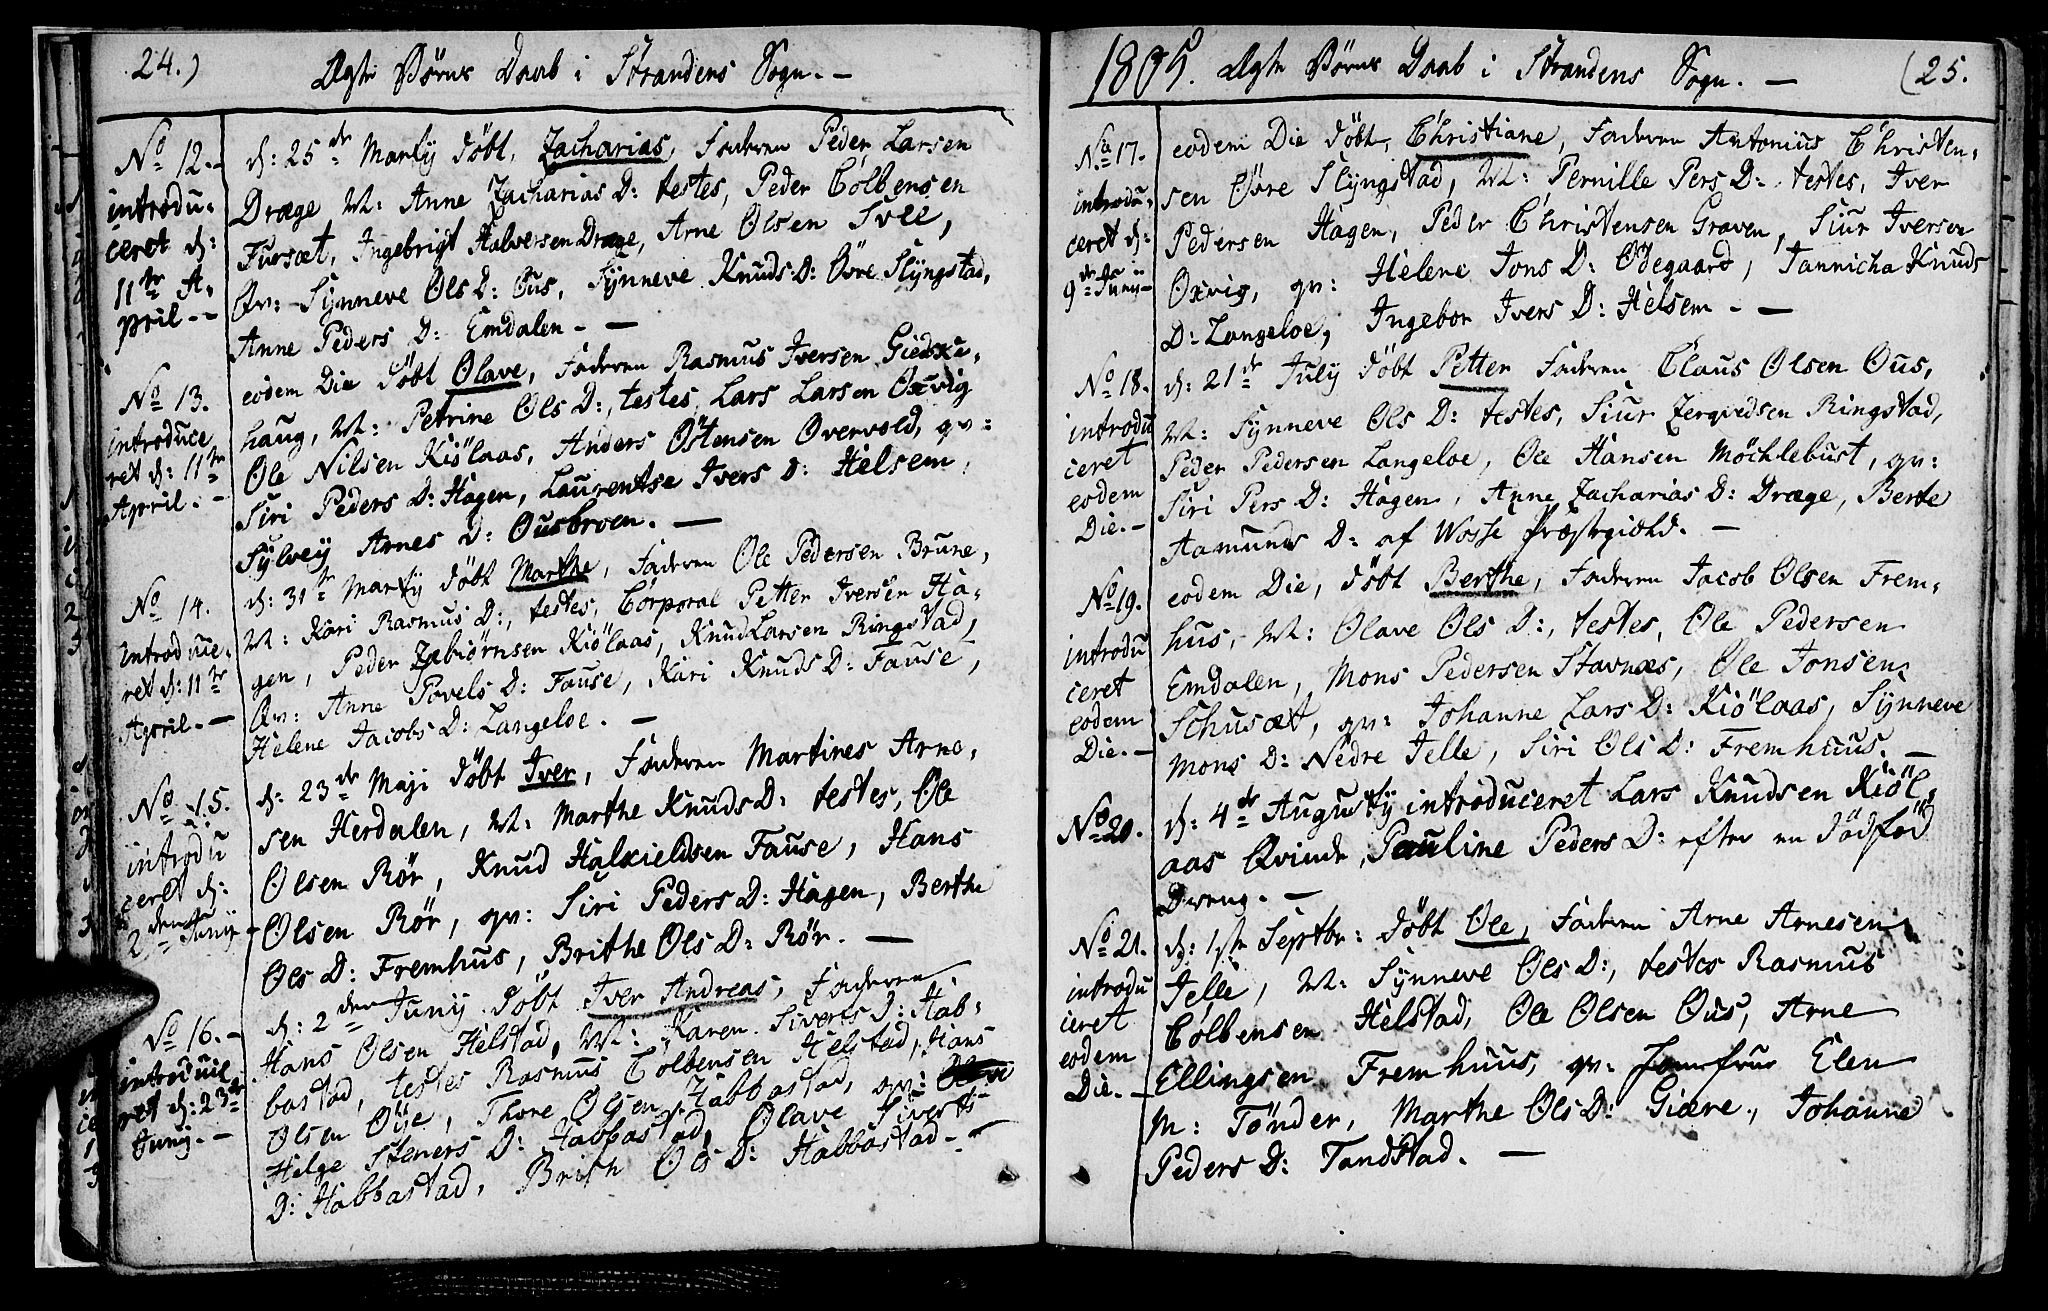 24.)
Ægte Börns Daab i Strandens Sogn. -
No 12. -
introdu-
ceret d:
11te A-
pril - -
d: 25de Martij döbt, Zacharias, Faderen Peder Larsen
Dræge M: Anne Zacharias D: testes, Peder Colbensen
Fursæt, Ingebrigt Halversen Dræge, Arne Olsen Svee,
Qv: Synneve Ols D: Ous, Synneve Knuds D: Övre Slyngstad,
Anne Peders D: Emdalen - -
No 13.
introduce
ret d: 11te
April. -
eodem Die döbt Olave, Faderen Rasmus Iversen Giedske-
haug, M: Petrine Ols D:, testes, Lars Larsen Oxvig
Ole Nilsen Kiölaas, Anders Östensen Overvold, qv:
Siri Peders D: Hagen, Laurentse Ivers D: Helsem,
Sylvey Arnes D: Ousbroen. -
No 14.
introduce-
ret d: 11te
April. -
d: 31te Martij döbt Marthe, Faderen Ole Pedersen Brune,
M: Kari Rasmus D:, testes, Corporal Petter Iversen Ha-
gen, Peder Zabiörnsen Kiölaas, Knud Larsen Ringstad,
Qv: Anne Povels D: Fause, Kari Knuds D: Fause,
Helene Jacobs D: Langeloe. -
No 15.
introdu
ceret d:
2den Junij -
d: 23de Maji döbt Iver, Faderen Martines Arne-
sen Herdalen, M: Marthe Knuds D: testes, Ole
Olsen Rör, Knud Halkieldsen Fause, Hans
Olsen Rör, qv: Siri Peders D: Hagen, Berthe
Ols D: Fremhus, Brithe Ols D: Rör. -
No 16. -
introduce
ret d: 23de
Junij. -
d: 2den Junij döbt Iver Andreas, Faderen
Hans Olsen Helstad, M: Karen Siverts D: Hab-
bastad, testes Rasmus Colbensen Helstad, Hans
Olsen Öije, Thore Olsen Habbastad, qv:
Helge Steners D: Habbastad, Olave Siverts
D: Habbastad, Brith Ols D: Habbastad - -
1805. Ægte Börns Daab i Strandens Sogn. -
(25.
No 17.
introdu-
ceret d:
9de Junij -
eodem Die döbt, Christiane, Faderen Antonius Christen-
sen Övre Slyngstad, M: Pernille Pers D: testes, Iver
Pedersen Hagen, Peder Christensen Graven, Siur Iversen
Oxvig, qv: Helene Jons D: Ödegaard, Jannicha Knuds
D: Langeloe, Ingebor Ivers D: Helsem - -
No 18.
introdu
ceret
eodem
Die. -
d: 21de July döbt Petter Faderen Claus Olsen Ous,
M: Synneve Ols D: testes, Siur Zergvedsen Ringstad,
Peder Pedersen Langeloe, Ole Hansen Möchlebust, qv:
Siri Pers D: Hagen, Anne Zacharias D: Dræge, Berte
Aamunds D: af Wosse Præstegield. -
No 19.
introdu
ceret
eodem
Die. -
eodem Die, döbt Berthe, Faderen Jacob Olsen Frem-
hus, M: Olave Ols D:, testes, Ole Pedersen
Emdalen, Mons Pedersen Stavnæs, Ole Jonsen
Schusæt, qv: Johanne Lars D: Kiölaas, Synneve
Mons D: Nedre Jelle, Siri Ols D: Fremhuus. -
No 20.
d: 4de Augusty introduceret Lars Knudsen Kiöl-
aas Qvinde, Pauline Peders D: efter en dödföd
Dreng. -
No 21.
introdu
ceret
eodem
Die. -
d: 1ste Septbr: döbt Ole, Faderen Arne Arnesen
Jelle, M: Synneve Ols D:, testes Rasmus
Colbensen Helstad, Ole Olsen Ous, Arne
Ellingsen Fremhuus, qv: Jomfrue Elen
M: Tönder, Marthe Ols D: Giære, Johanne
Peders D: Tandstad. -